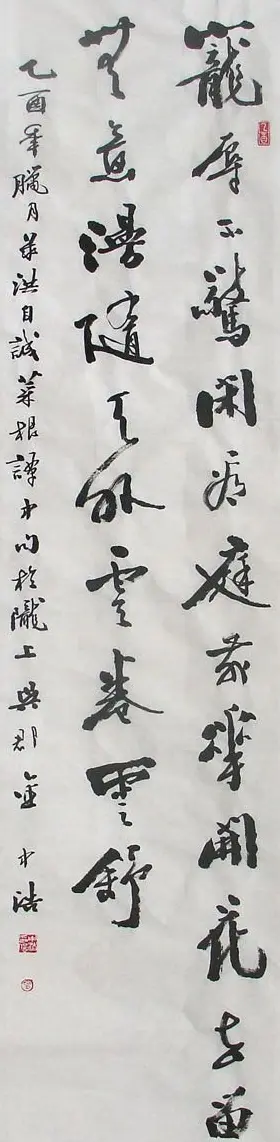 寵辱不驚閑看庭前華開花去留
無意漫隨天外雲卷雲舒
乙酉年臘月菜洪自誠菜根譚中句於隴上興郡金中浩